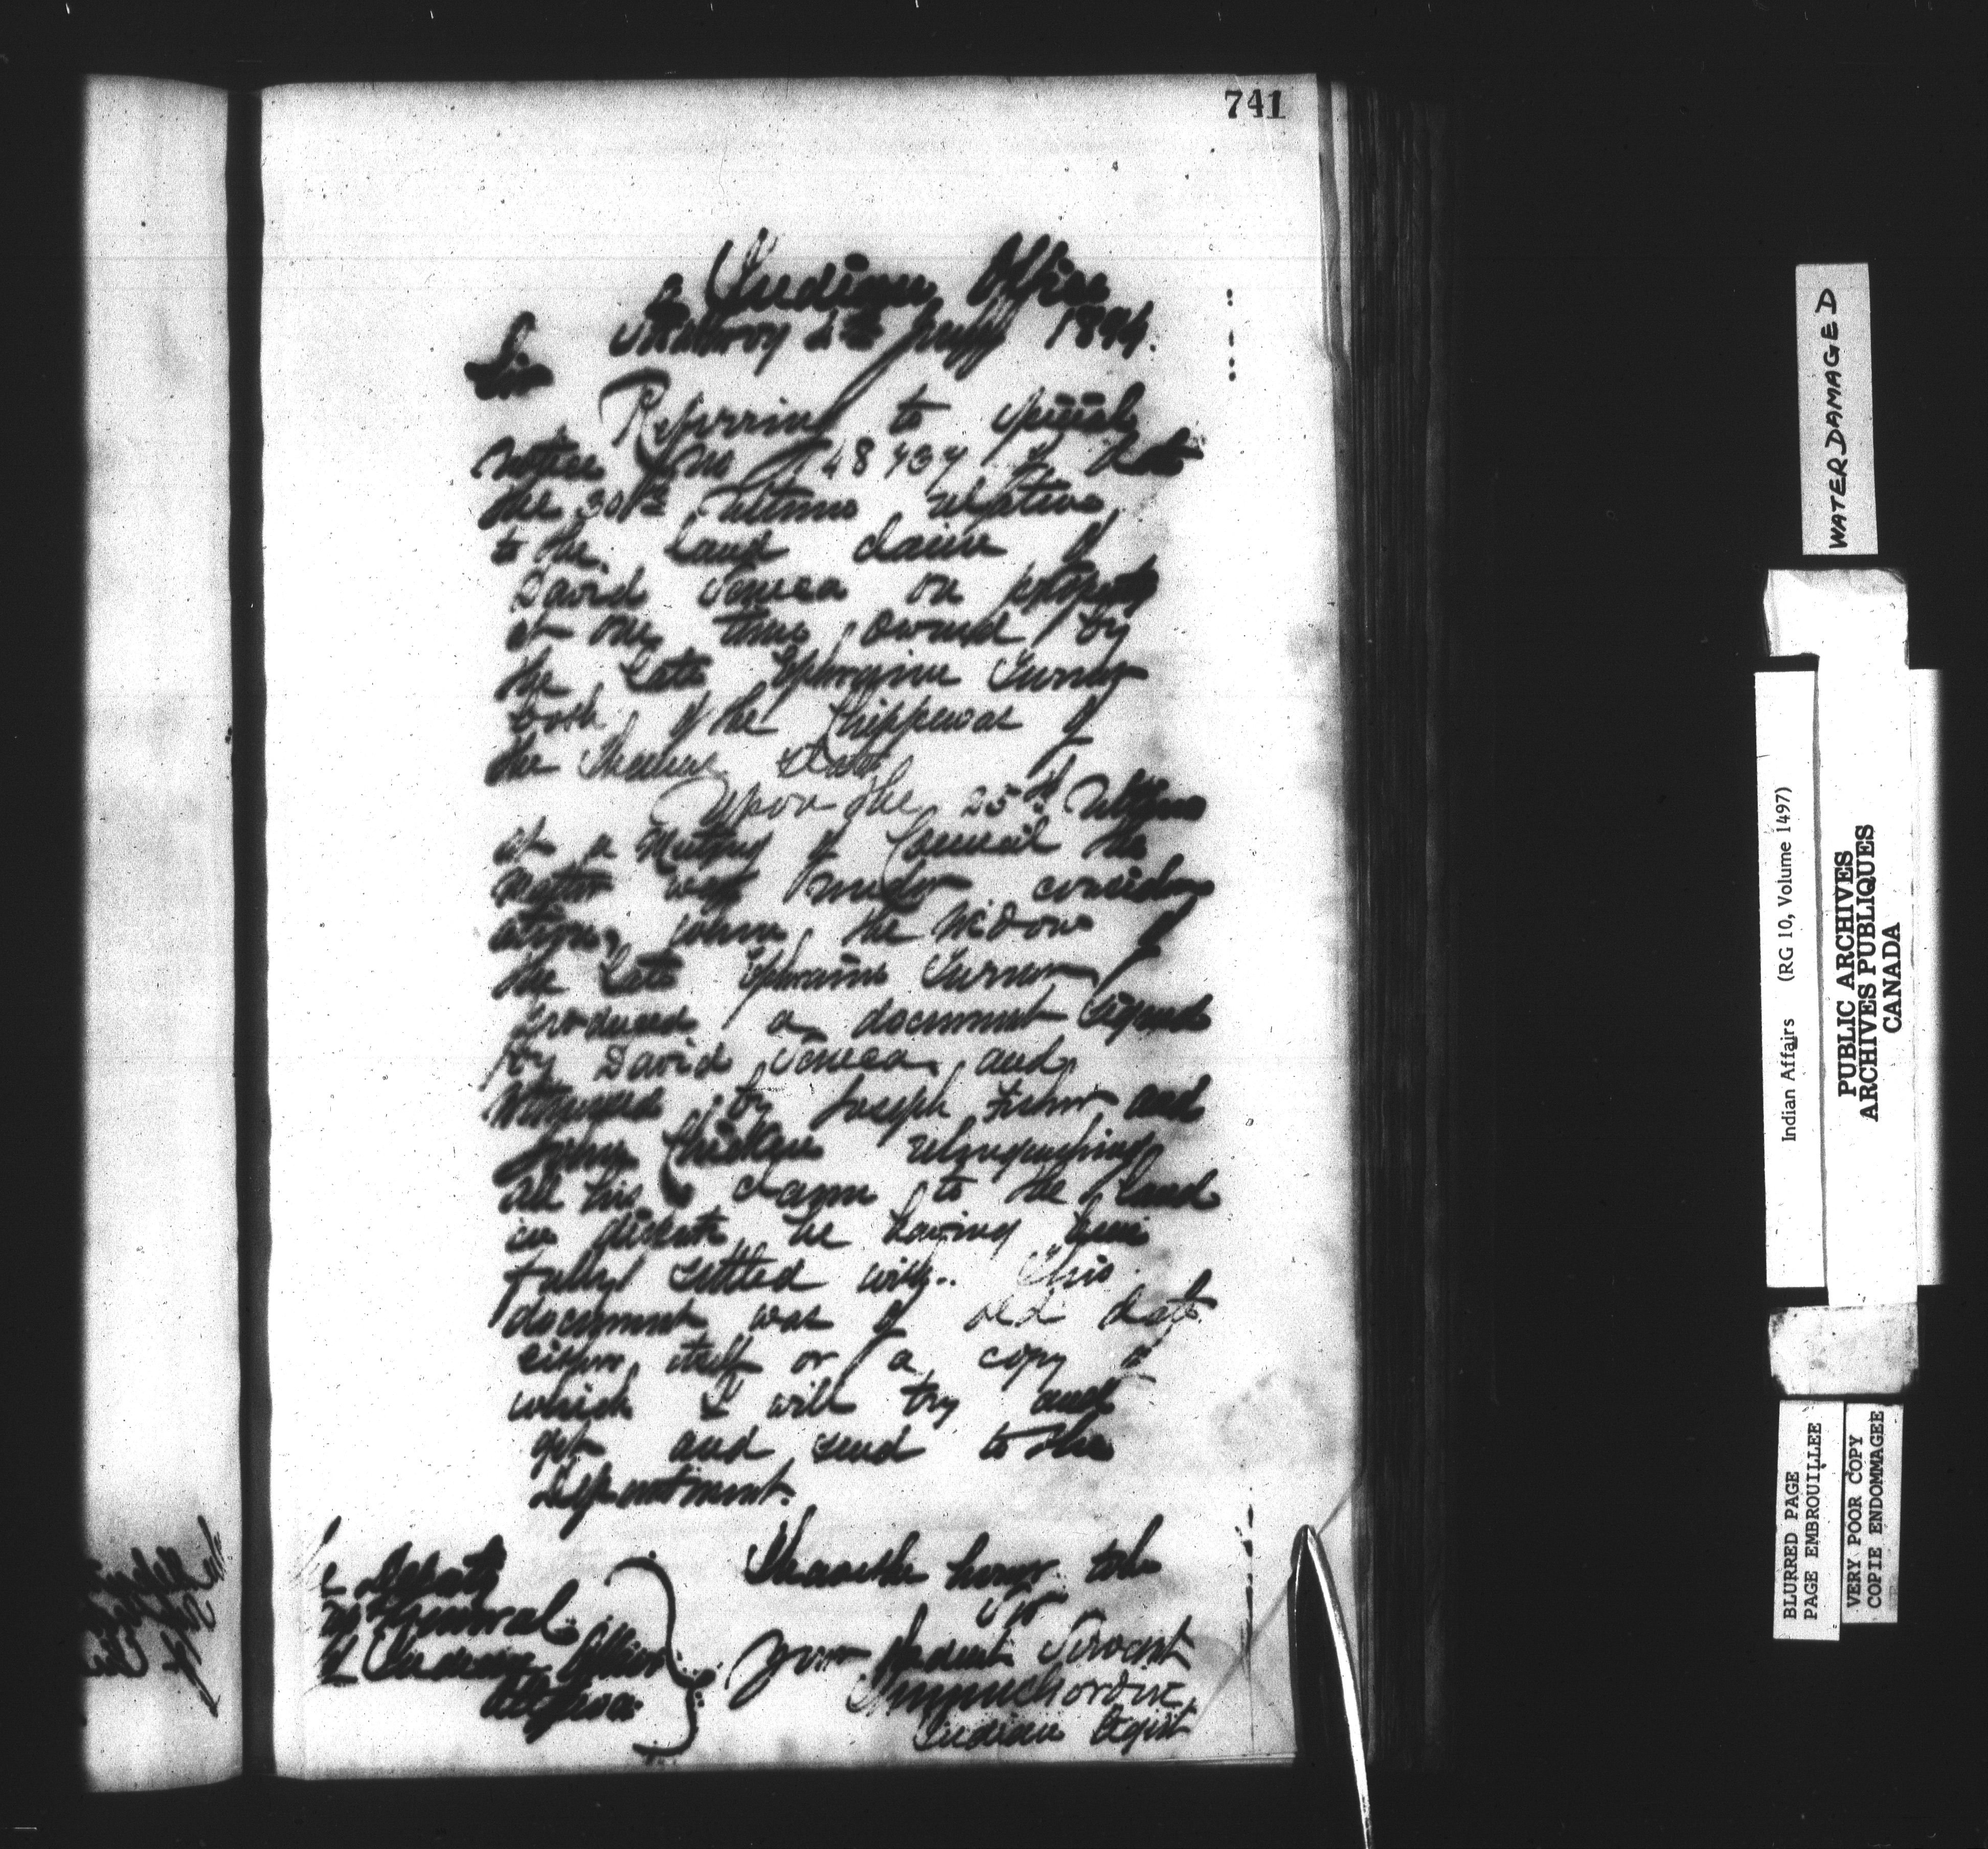 741
Indian Office
Strathroy 2nd July 1894.
Sir
Referring to special
notice from of 48737 of date
the 30th ultimo relative
to the land claim of
David Seneca on property
at one time owned by
the late Ephraim Turner
both of the Chippewas of
the Thames Band
Upon the 25th ultimo
at a meeting of Council the
matter was under consider
ation, when the widow of
the late Ephraim Turner
produced a document signed
by David Seneca and
witnessed by Joseph Fisher and
John Chicken relinquishing
all his claim to the land
in dispute he having been
fully settled with. This
document was of old date
either itself or a copy of
which I will try and
get and send to the
Department.
I have the honor to be
Sir
Your Obedient Servant
Indian Agent
The Deputy
Supt General
of Indian Affairs
Ottawa
WATER DAMAGED
Indian Affairs (RG 10, Volume 1497)
PUBLIC ARCHIVES
ARCHIVES PUBLIQUES
CANADA
BLURRED PAGE
PAGE EMBROUILLEE
VERY POOR COPY
COPIE ENDOMMAGEE